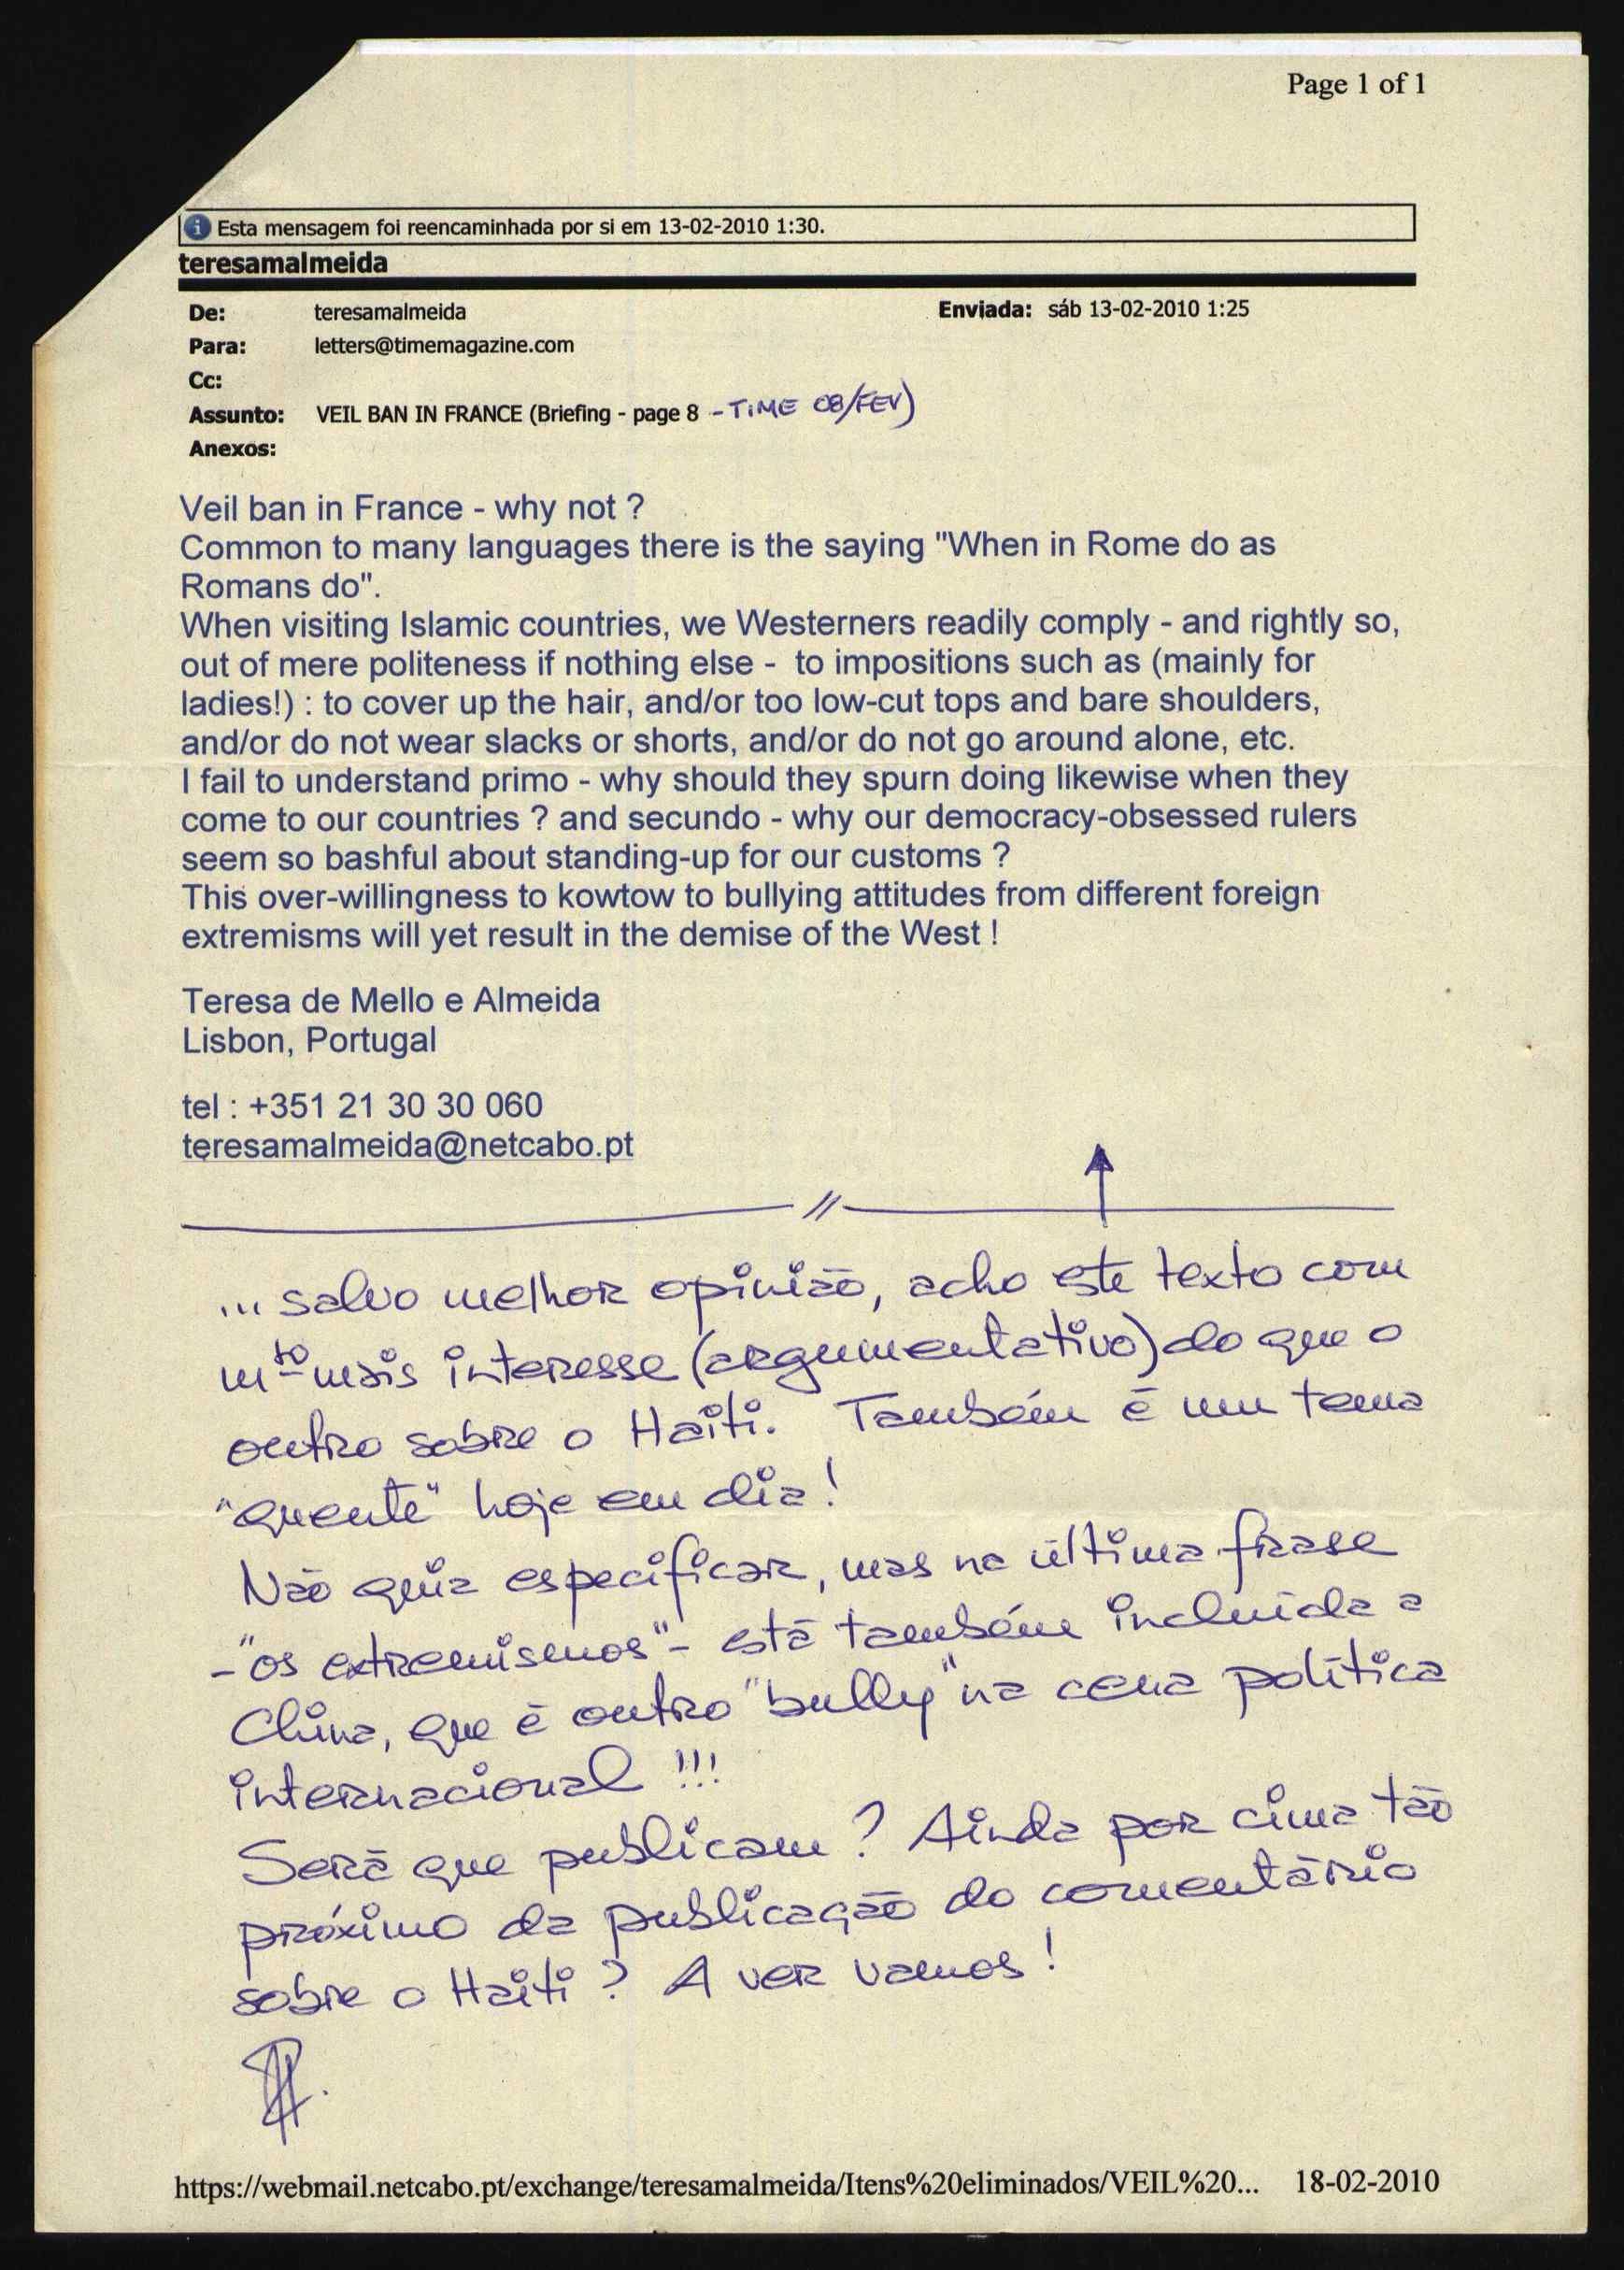 Page 1 of 1
Esta mensagem foi reencaminhada por si em 13-02-2010 1:30.
teresamalmeida
De: teresamalmeida Enviada: sáb 13-02-2010 1:25
Para: letters@timemagazine.com
Cc:
Assunto: VEIL BAN IN FRANCE (Briefing - page 8 - TIME 08/FEV)
Anexos:
Veil ban in France - why not ?
Common to many languages there is the saying "When in Rome do as
Romans do".
When visiting Islamic countries, we Westerners readily comply - and rightly so,
out of mere politeness if nothing else - to impositions such as (mainly for
ladies!) : to cover up the hair, and/or too low-cut tops and bare shoulders,
and/or do not wear slacks or shorts, and/or do not go around alone, etc.
I fail to understand primo - why should they spurn doing likewise when they
come to our countries ? and secundo - why our democracy-obsessed rulers
seem so bashful about standing-up for our customs ?
This over-willingness to kowtow to bullying attitudes from different foreign
extremisms will yet result in the demise of the West !
Teresa de Mello e Almeida
Lisbon, Portugal
tel : +351 21 30 30 060
teresamalmeida@netcabo.pt
... salvo melhor opinião, acho este texto com
mto mais interesse (argumentativo) do que o
outro sobre o Haiti. Também é um tema
"quente" hoje em dia!
Não quiz especificar, mas na última frase
- "os extremismos" - está também incluída a
China, que é outro "bully" na cena política
internacional !!!
Será que publicam? Ainda por cima tão
próximo da publicação do comentário
sobre o Haiti? A ver vamos!
https://webmail.netcabo.pt/exchange/teresamalmeida/Itens%20eliminados/VEIL%20... 18-02-2010